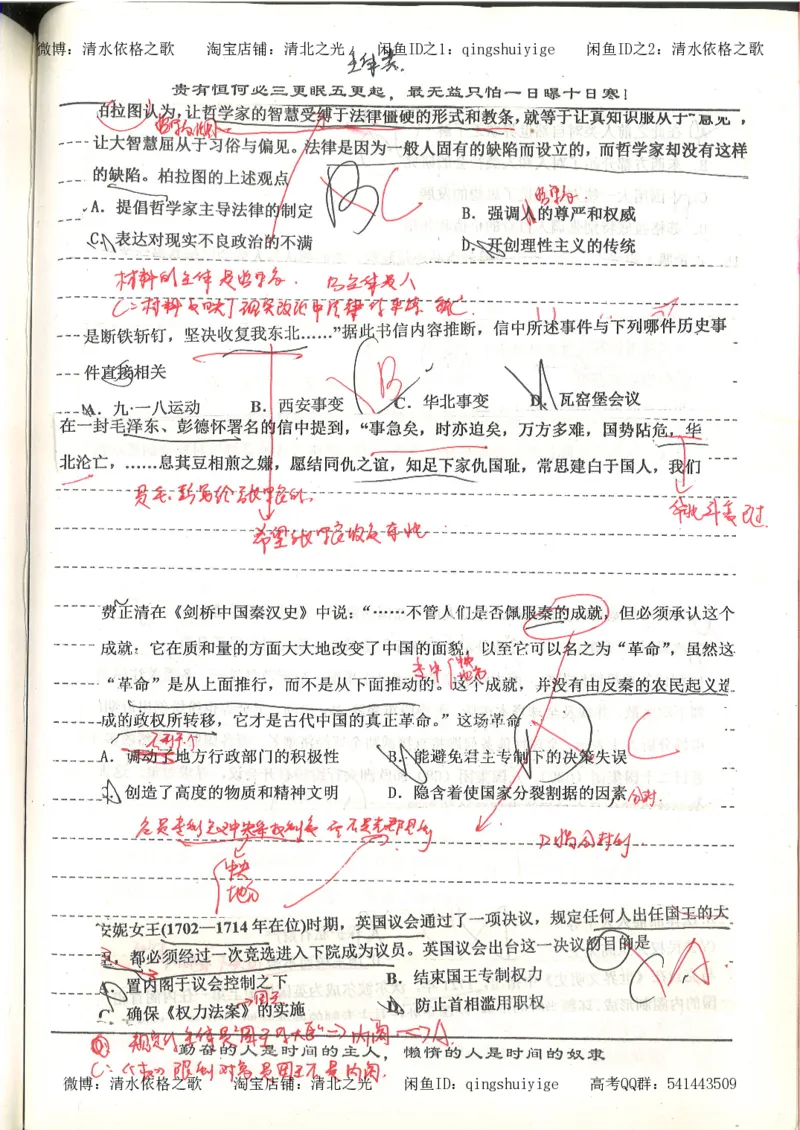 微博：清水依格之歌 淘宝店铺：清北之光 闲鱼ID之1：qingshuiyige 闲鱼ID之2：清水依格之歌
贵有恒何必三更眠五更起，最无益只怕一日曝十日寒！
柏拉图认为，让哲学家的智慧受缚于法律僵硬的形式和教条，就等于让真知识服从于“意见”，
让大智慧屈从于习俗与偏见。法律是因为一般人固有的缺陷而设立的，而哲学家却没有这样
的缺陷。柏拉图的上述观点
B C
A．提倡哲学家主导法律的制定 B．强调人的尊严和权威
C．表达对现实不良政治的不满 D．开创理性主义的传统
材料的主体是哲学家．B主体是人
是断铁斩钉，坚决收复我东北……”据此书信内容推断，信中所述事件与下列哪件历史事
件直接相关
B
A．九·一八运动 B．西安事变 C．华北事变 D．瓦窑堡会议
在一封毛泽东、彭德怀署名的信中提到，“事急矣，时亦迫矣，万方多难，国势阽危，华
北沦亡，……息萁豆相煎之嫌，愿结同仇之谊，知足下家仇国耻，常思建白于国人，我们
费正清在《剑桥中国秦汉史》中说：“……不管人们是否佩服秦的成就，但必须承认这个
成就：它在质和量的方面大大地改变了中国的面貌，以至它可以名之为“革命”，虽然这
“革命”是从上面推行，而不是从下面推动的。这个成就，并没有由反秦的农民起义造
成的政权所转移，它才是古代中国的真正革命。”这场革命
C
A．调动了地方行政部门的积极性 B．能避免君主专制下的决策失误
C．创造了高度的物质和精神文明 D．隐含着使国家分裂割据的因素 分封．
D指分封制．
中央
地方
安妮女王(1702—1714年在位)时期，英国议会通过了一项决议，规定任何人出任国王的大
臣，都必须经过一次竞选进入下院成为议员。英国议会出台这一决议的目的是
A
A．置内阁于议会控制之下 B．结束国王专制权力
C．确保《权力法案》的实施 D．防止首相滥用职权
勤奋的人是时间的主人，懒惰的人是时间的奴隶
微博：清水依格之歌 淘宝店铺：清北之光 闲鱼ID：qingshuiyige 高考QQ群：541443509